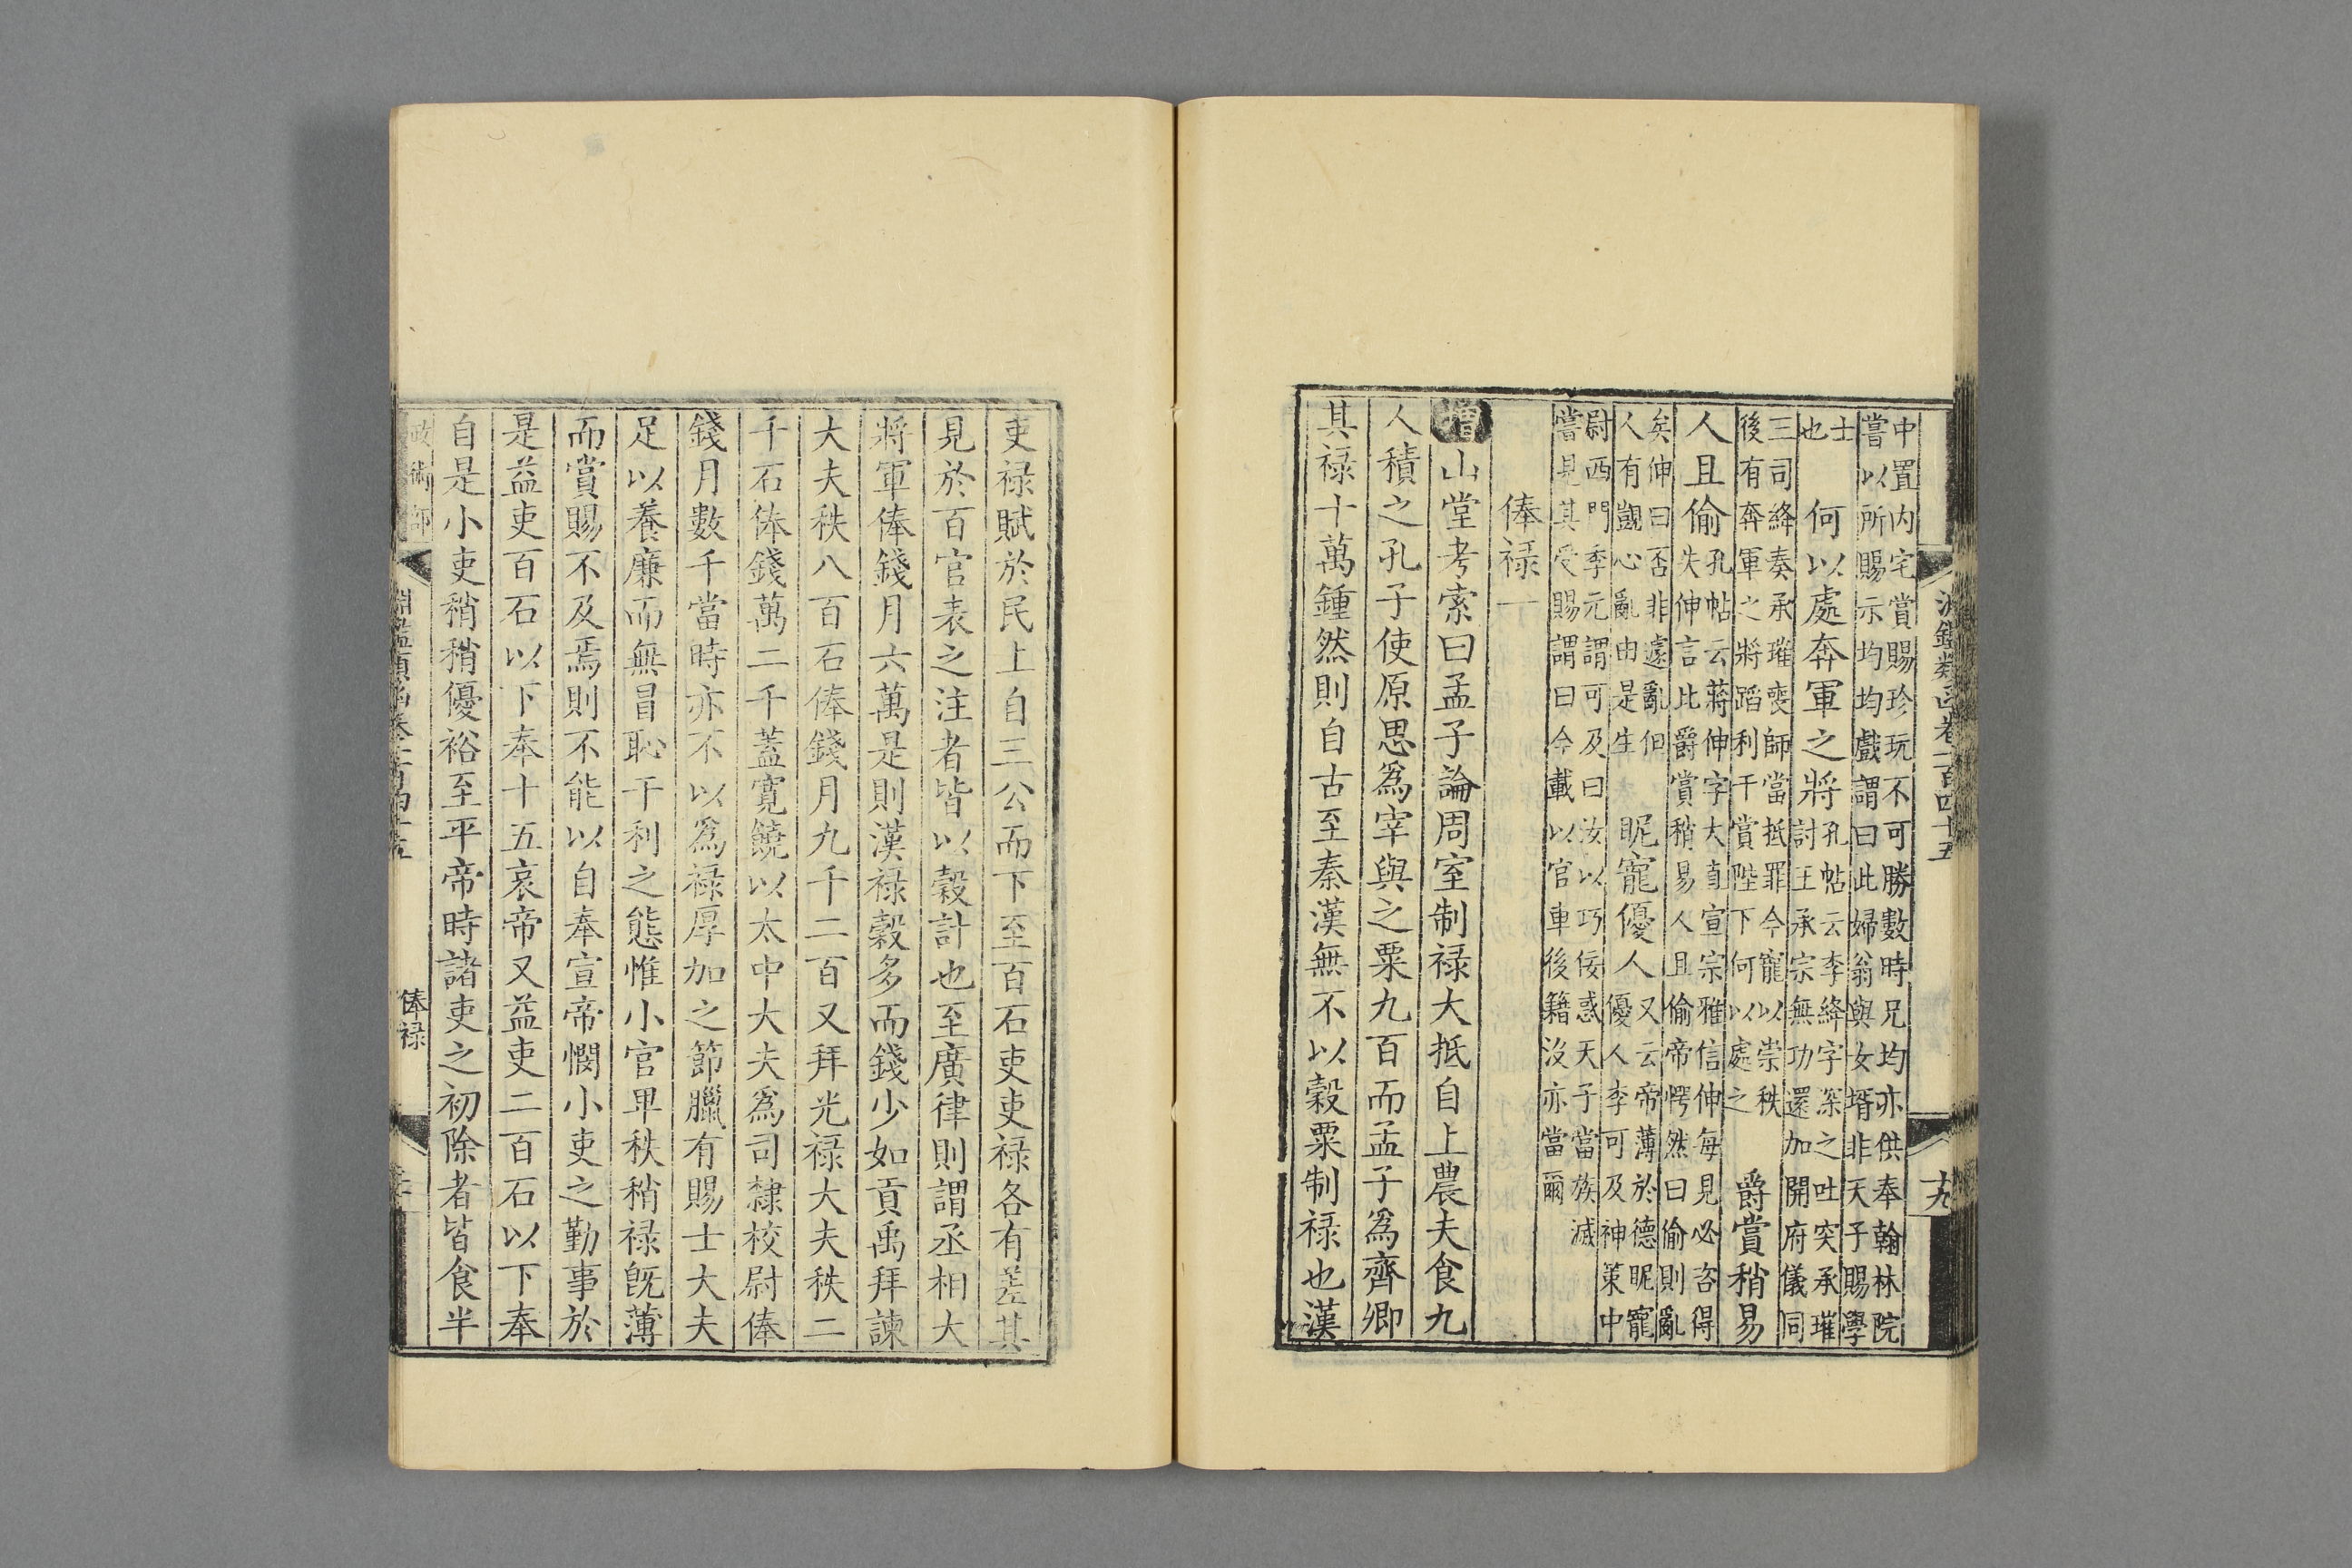 淵鑑類函卷一百四十五
十九
中置内宅賞賜珍玩不可勝數時兄均亦供奉翰林院
嘗以所賜示均均戲謂曰此婦翁與女壻非天子賜學
士
也
何以處奔軍之將
孔帖云李絳字深之吐突承璀
討王承宗無功還加開府儀同
三司絳奏承璀喪師當抵罪今寵以崇秩
後有奔軍之將蹈利干賞陛下何以處之
爵賞稍易
人且偷
孔帖云蔣伸字大直宣宗雅信伸每見必咨得
失伸言比爵賞稍易人且偷帝愕然曰偷則亂
矣伸曰否非遽亂但
人有覬心亂由是生
昵寵優人
又云帝薄於德昵寵
優人李可及神策中
尉西門季元謂可及曰汝以巧佞惑天子當族滅
嘗見其受賜謂曰今載以官車後籍沒亦當爾
俸禄一
增山堂考索曰孟子論周室制禄大抵自上農夫食九
人積之孔子使原思爲宰與之粟九百而孟子爲齊卿
其禄十萬鍾然則自古至秦漢無不以穀粟制禄也漢
吏禄賦於民上自三公而下至百石吏吏禄各有差其
見於百官表之注者皆以穀計也至廣律則謂丞相大
將軍俸錢月六萬是則漢禄穀多而錢少如貢禹拜諫
大夫秩八百石俸錢月九千二百又拜光禄大夫秩二
千石俸錢萬二千蓋寛饒以太中大夫爲司隸校尉俸
錢月數千當時亦不以爲禄厚加之節臘有賜士大夫
足以養廉而無冒恥干利之態惟小官卑秩稍禄既薄
而賞賜不及焉則不能以自奉宣帝憫小吏之勤事於
是益吏百石以下奉十五哀帝又益吏二百石以下奉
自是小吏稍稍優裕至平帝時諸吏之初除者皆食半
政術部
淵鑑類函卷一百四十五
俸禄